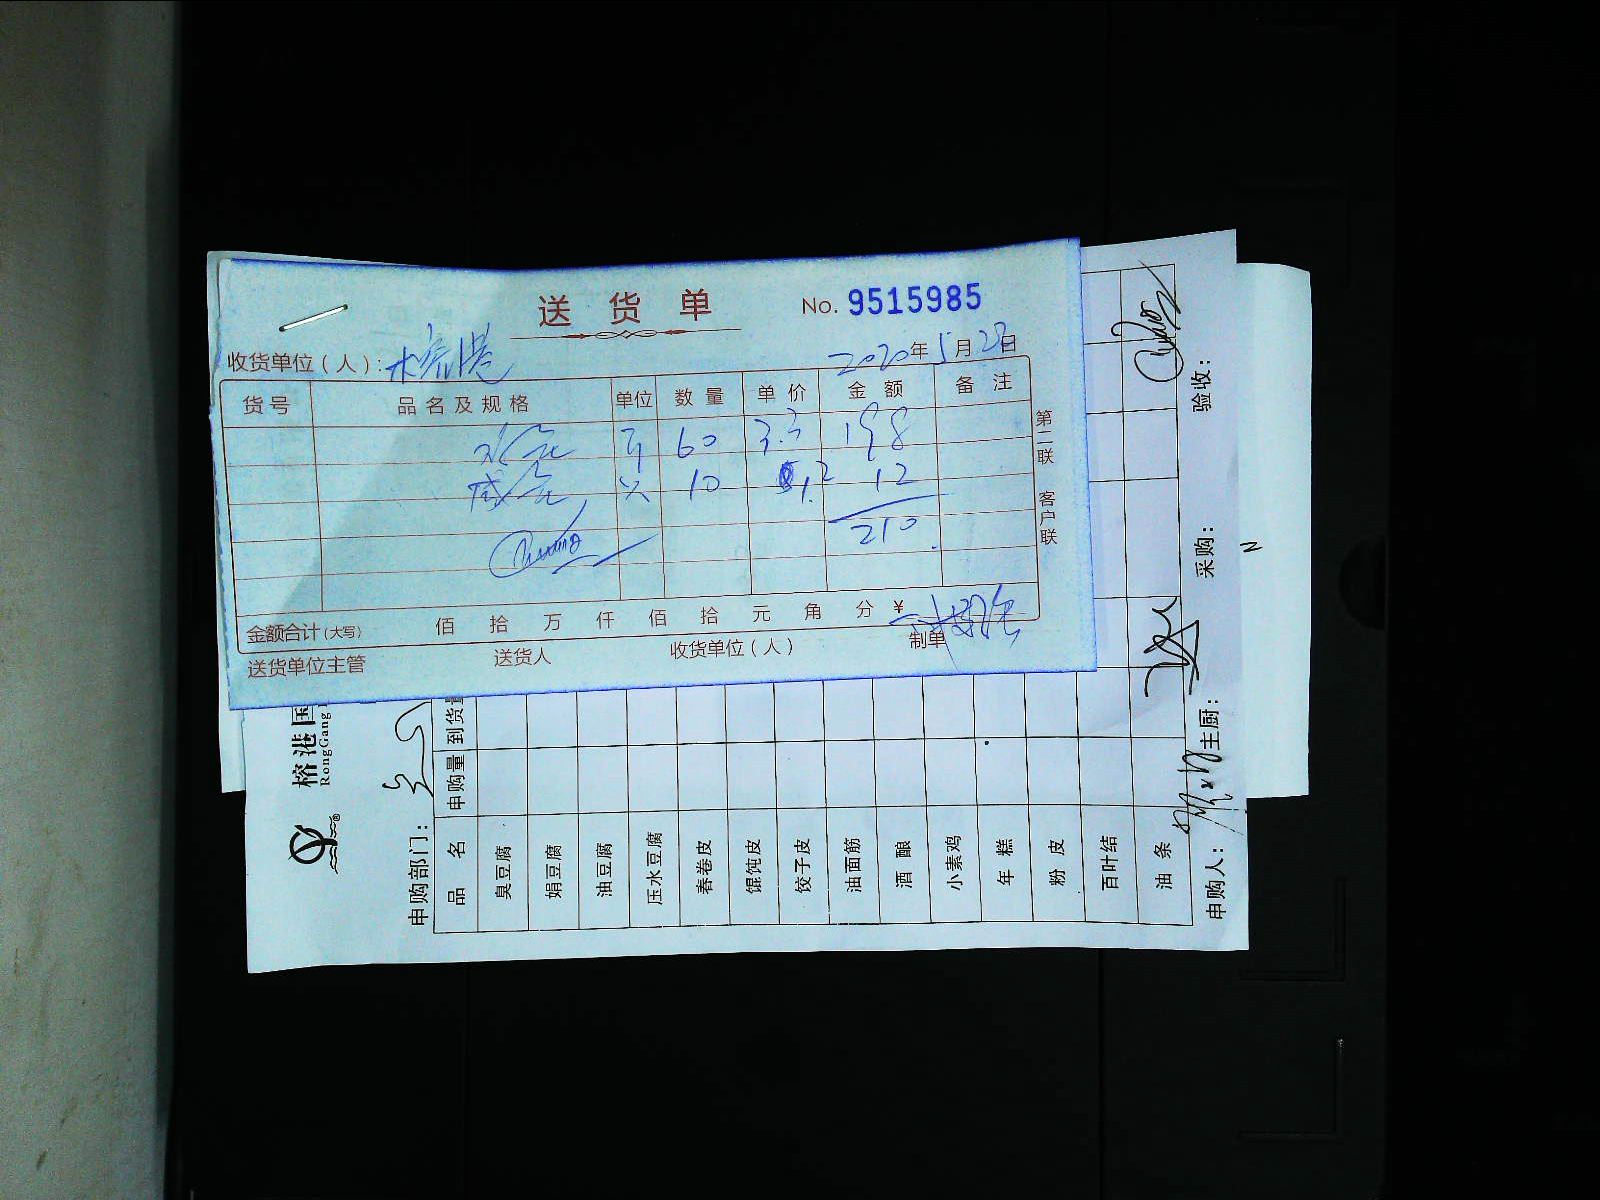 送货单
No. 9515985
收货单位(人): 榕港
2020年5月23日
货号 品名及规格 单位 数量 单价 金额 备注
60 3.3 198
只 10 1.2 12
210
第二联 客户联
金额合计(大写) 佰 拾 万 仟 佰 拾 元 角 分 ¥
送货单位主管 送货人 收货单位(人) 制单
榕港国
RongGang
申购部门:
品名 申购量 到货量
臭豆腐
娟豆腐
油豆腐
压水豆腐
春卷皮
馄饨皮
饺子皮
油面筋
酒酿
小素鸡
年糕
粉皮
百叶结
油条
申购人: 主厨: 采购: 验收: